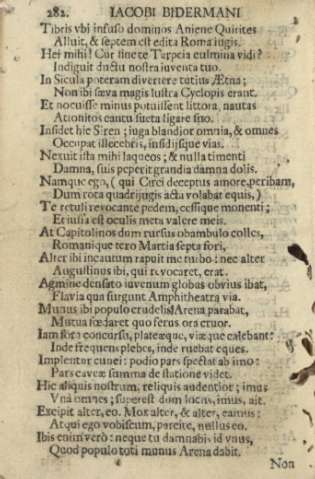 282. IACOBI BIDERMANI
Tibris vbi infuso dominos Aniene Quirites
Alluit, & septem est edita Roma iugis.
Hei mihi! Cur sine te Tarpeia culmina vidi?
Indiguit ductu nostra iuventa tuo.
In Sicula poteram divertere tutius Ætna;
Non ibi sæva magis lustra Cyclopis erant.
Et nocuisse minus potuissent littora, nautas
Attonitos cantu sueta ligare suo.
Insidet hic Siren; iuga blandior omnia, & omnes
Occupat illecebris, insidijsque vias.
Nexuit ista mihi laqueos; & nulla timenti
Damna, suis peperit grandia damna dolis.
Namque ego, (qui Circi deceptus amore, peribam,
Dum rota quadrijugis acta volabat equis,)
Te retuli revocante pedem, cessique monenti;
Et iussa est oculis meta valere meis.
At Capitolinos dum rursus obambulo colles,
Romanique tero Martia septa fori,
Alter ibi incautum rapuit me turbo: nec alter
Augustinus ibi, qui revocaret, erat.
Agmine densato iuvenum globus obvius ibat,
Flavia qua surgunt Amphitheatra via.
Munus ibi populo crudelis Arena parabat,
Mutua fœdaret quo ferus ora cruor.
Iam fora concursu, plateæque, viæque calebant:
Inde frequens plebes, inde ruebat eques.
Implentur cunei: podio pars spectat ab imo:
Pars caveæ summa de statione videt.
Hic aliquis nostrum, reliquis audentior; imus
Vna omnes; superest dum locus, imus, ait.
Excipit alter, eo. Mox alter, & alter, eamus:
Atqui ego vobiscum, parcite, nullus eo.
Ibis enim verò: neque tu damnabis id vnus,
Quod populo toti munus Arena dabit.
Non